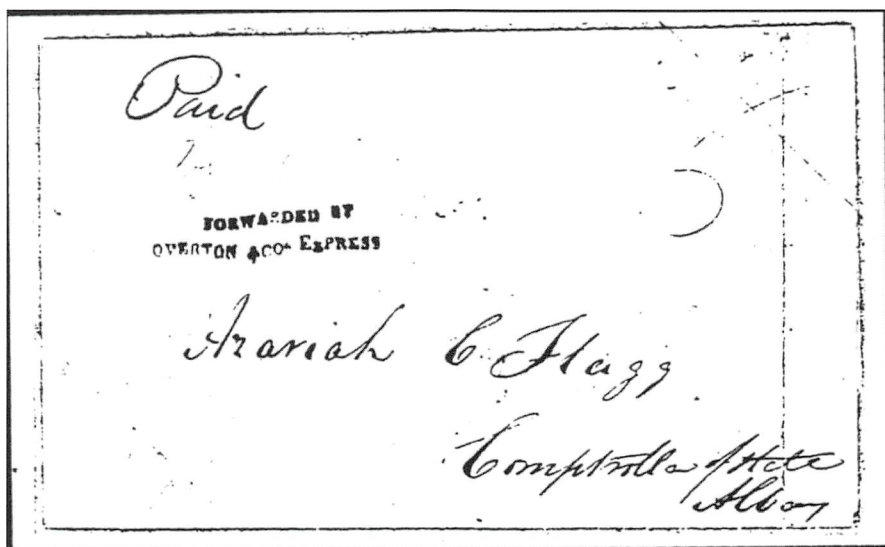 Paid
FORWARDED BY
OVERTON & CO'S EXPRESS
Azariah C Flagg
Comptroller of State
Albany